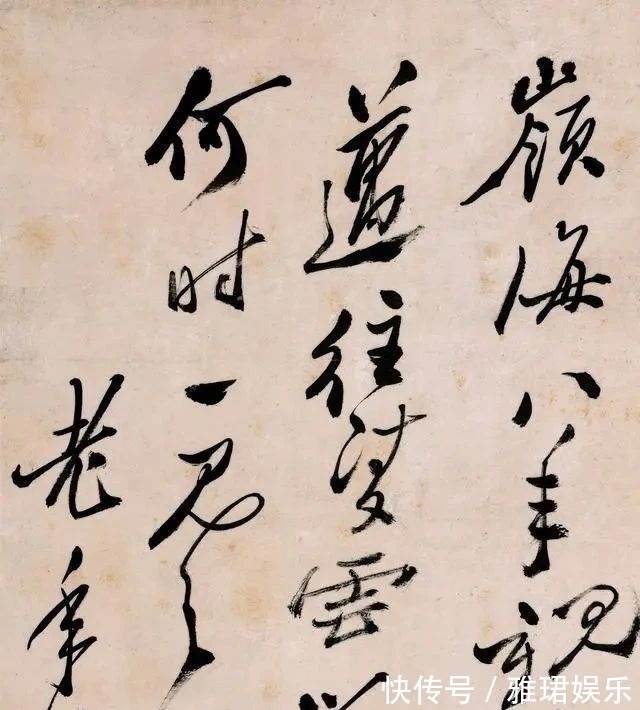 嶺海八年親
邁往凌雲
何时一見之
老年
快传号/雅珺娱乐